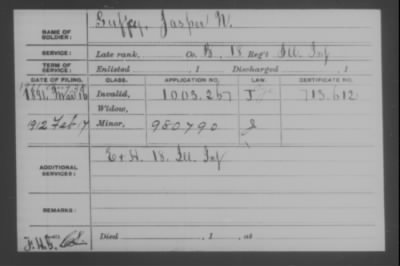 NAME OF SOLDIER: Guffey, Jasper N.
SERVICE: Late rank, Co. B, 18 Reg't Ill. Inf
TERM OF SERVICE: Enlisted , 1 Discharged , 1
DATE OF FILING. CLASS. APPLICATION NO. LAW. CERTIFICATE NO.
1891, Mar 16 Invalid, 1003.267 J 713.612
Widow,
1912 Feb 17 Minor, 980790 S
ADDITIONAL SERVICES: E & H. 18. Ill. Inf
REMARKS:
Died , 1 , at